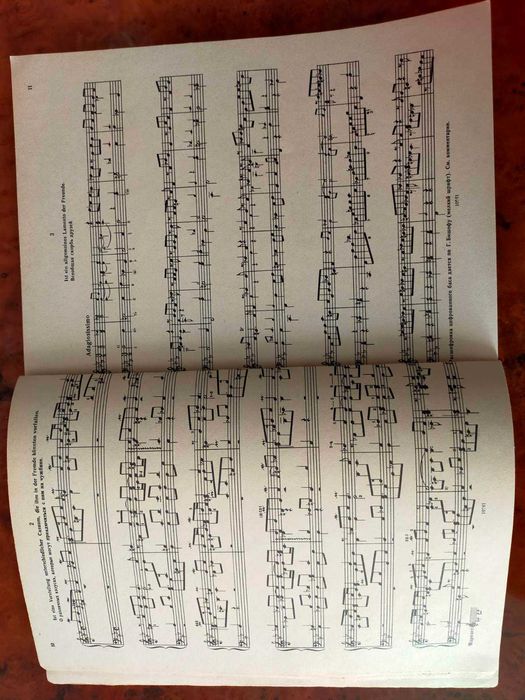 10
2
Ist eine Vorstellung unterschiedlicher Casuum, die ihm in der Fremde könnten vorfallen.
О различных казусах, которые могут приключиться с ним на чужбине.
11
3
Ist ein allgemeines Lamento der Freunde.
Всеобщая скорбь друзей.
Adagissimo
Расшифровка цифрованного баса дается по Г. Бишофу (мелкий шрифт). См. комментарии.